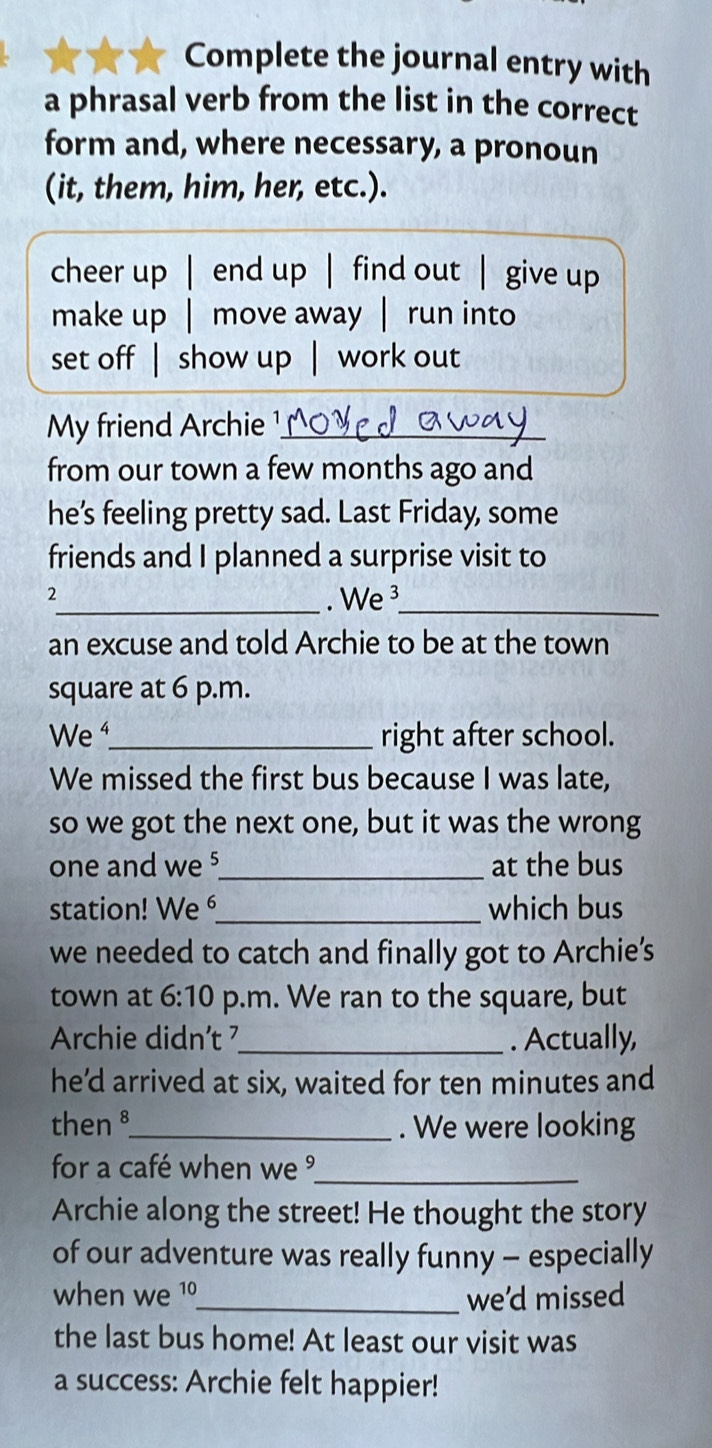 Complete the journal entry with
a phrasal verb from the list in the correct
form and, where necessary, a pronoun
(it, them, him, her, etc.).
cheer up | end up | find out | give up
make up | move away | run into
set off | show up | work out
My friend Archie ¹ Moved away
from our town a few months ago and
he's feeling pretty sad. Last Friday, some
friends and I planned a surprise visit to
²____________________. We ³____________________
an excuse and told Archie to be at the town
square at 6 p.m.
We ⁴____________________ right after school.
We missed the first bus because I was late,
so we got the next one, but it was the wrong
one and we ⁵____________________ at the bus
station! We ⁶____________________ which bus
we needed to catch and finally got to Archie's
town at 6:10 p.m. We ran to the square, but
Archie didn't ⁷____________________. Actually,
he'd arrived at six, waited for ten minutes and
then ⁸____________________. We were looking
for a café when we ⁹____________________
Archie along the street! He thought the story
of our adventure was really funny – especially
when we ¹⁰____________________ we'd missed
the last bus home! At least our visit was
a success: Archie felt happier!